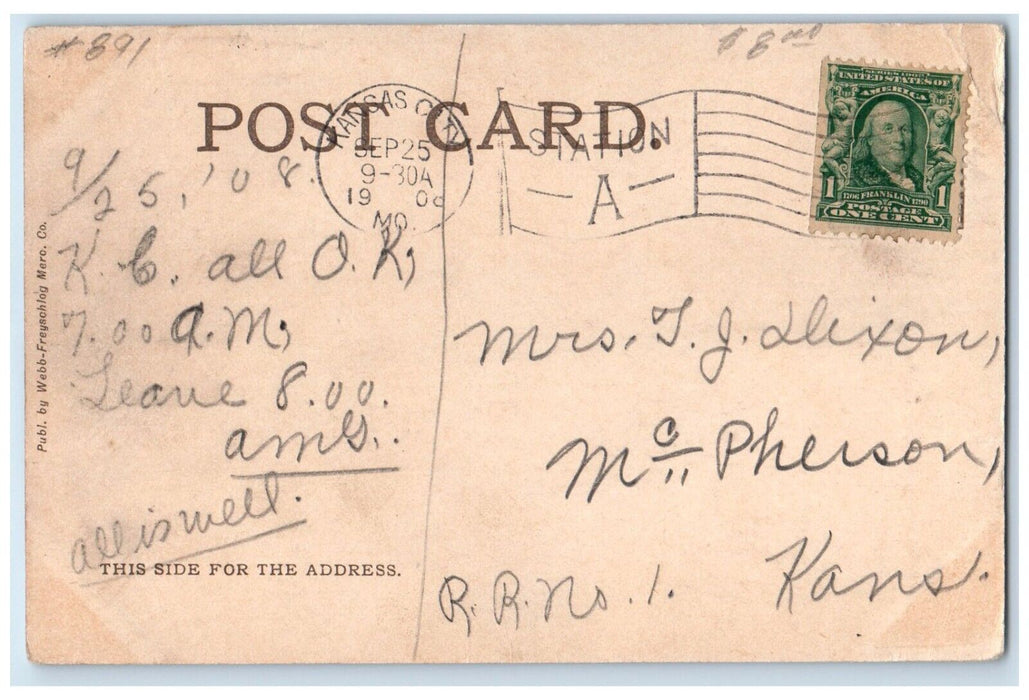 #891
$8.00
POST CARD.
KANSAS CITY
SEP 25
9-30A
1908
MO.
STATION
A
SERIES 1902
UNITED STATES OF
AMERICA
1706 FRANKLIN 1790
1 1
POSTAGE
ONE CENT
9/25, '08.
K. C. all O.K,
7.00 A.M,
Leave 8.00.
all is well.
THIS SIDE FOR THE ADDRESS.
Publ. by Webb-Freyschlag Merc. Co.
Mrs. T. J. Dixon,
McPherson,
R. R. No. 1. Kans.